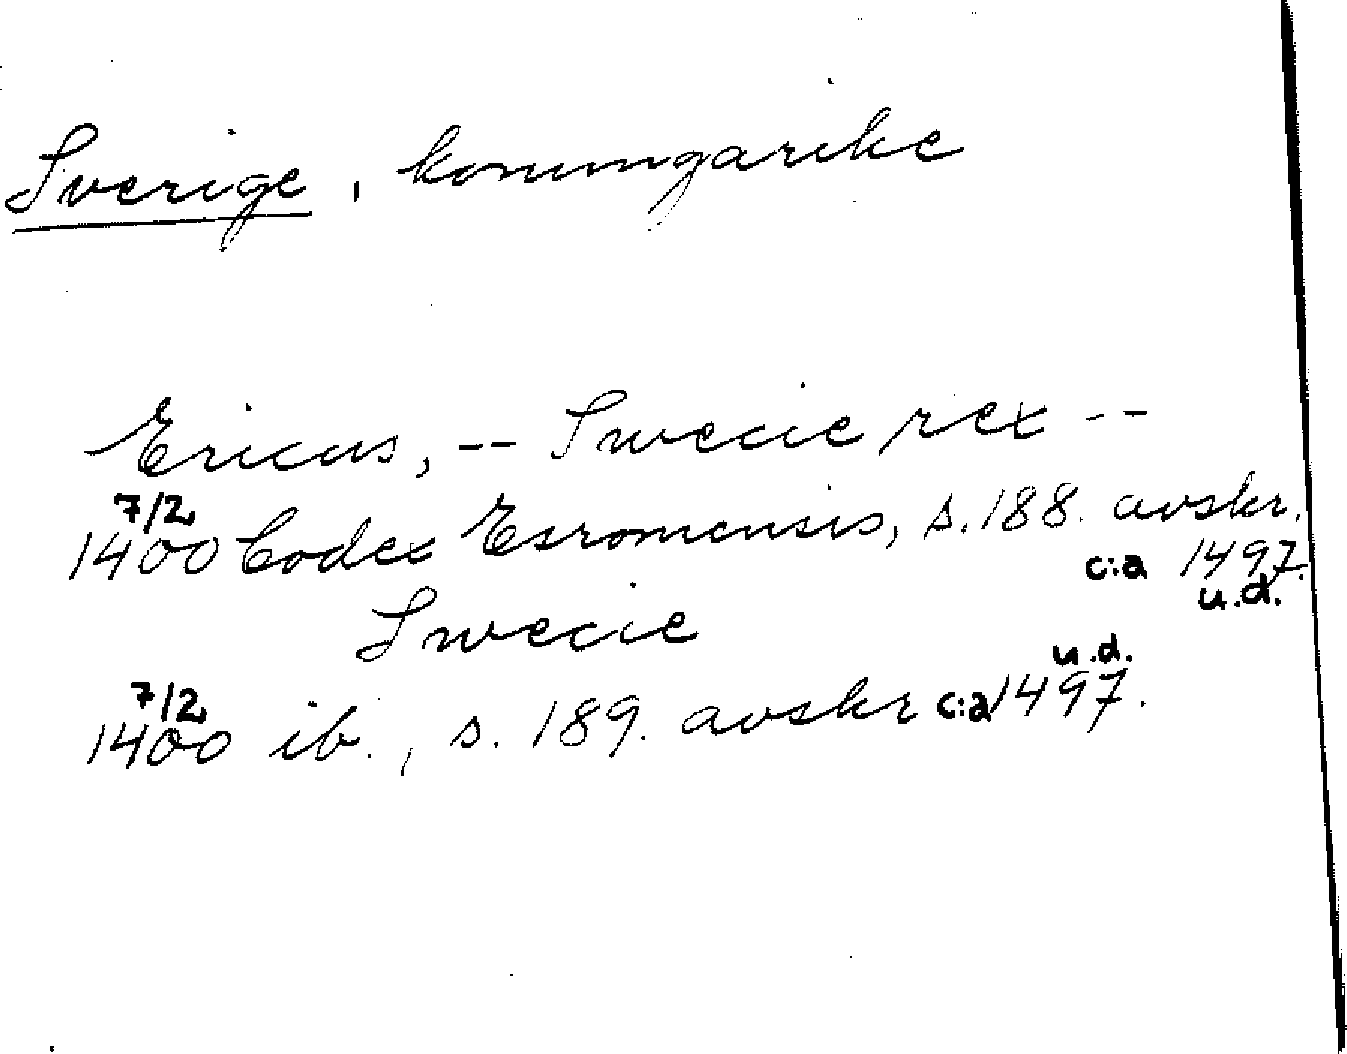 Sverige, konungarike
Ericus, -- Swecie rex --
7/2
1400 Codex Esromensis, s. 188. avskr.
c:a 1497.
u.d.
Swecie
7/2
1400 ib., s. 189. avskr c:a 1497.
u.d.